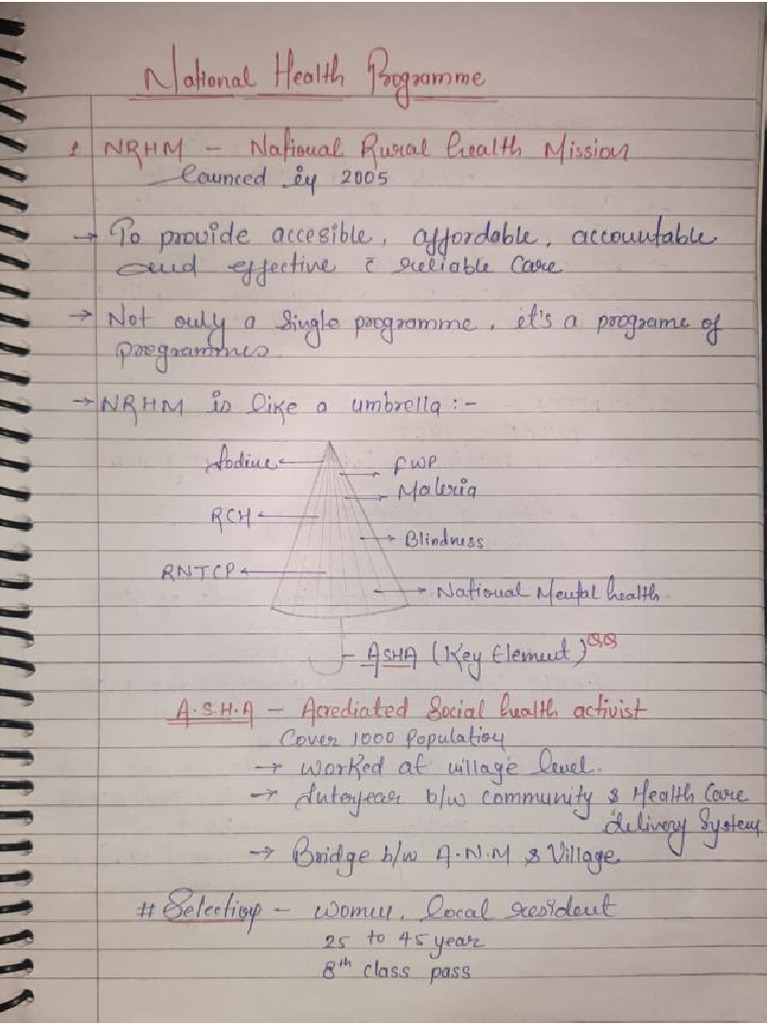 National Health Programme
1. NRHM - National Rural health Mission
Launced by 2005
→ To provide accesible, affordable, accountable
and effective c̄ reliable Care
→ Not only a single programme, it's a programe of
programmes
→ NRHM is like a umbrella :-
Iodine ← → FWP
→ Maleria
RCH ←
→ Blindness
RNTCP ←
→ National Mental health.
- ASHA (Key Element)
A.S.H.A - Acrediated Social health activist
Cover 1000 Population
→ worked at village level.
→ b/w community & Health Care
delivery System
→ Bridge b/w A.N.M & Village
# Selection - women, local resident
25 to 45 year
8th class pass